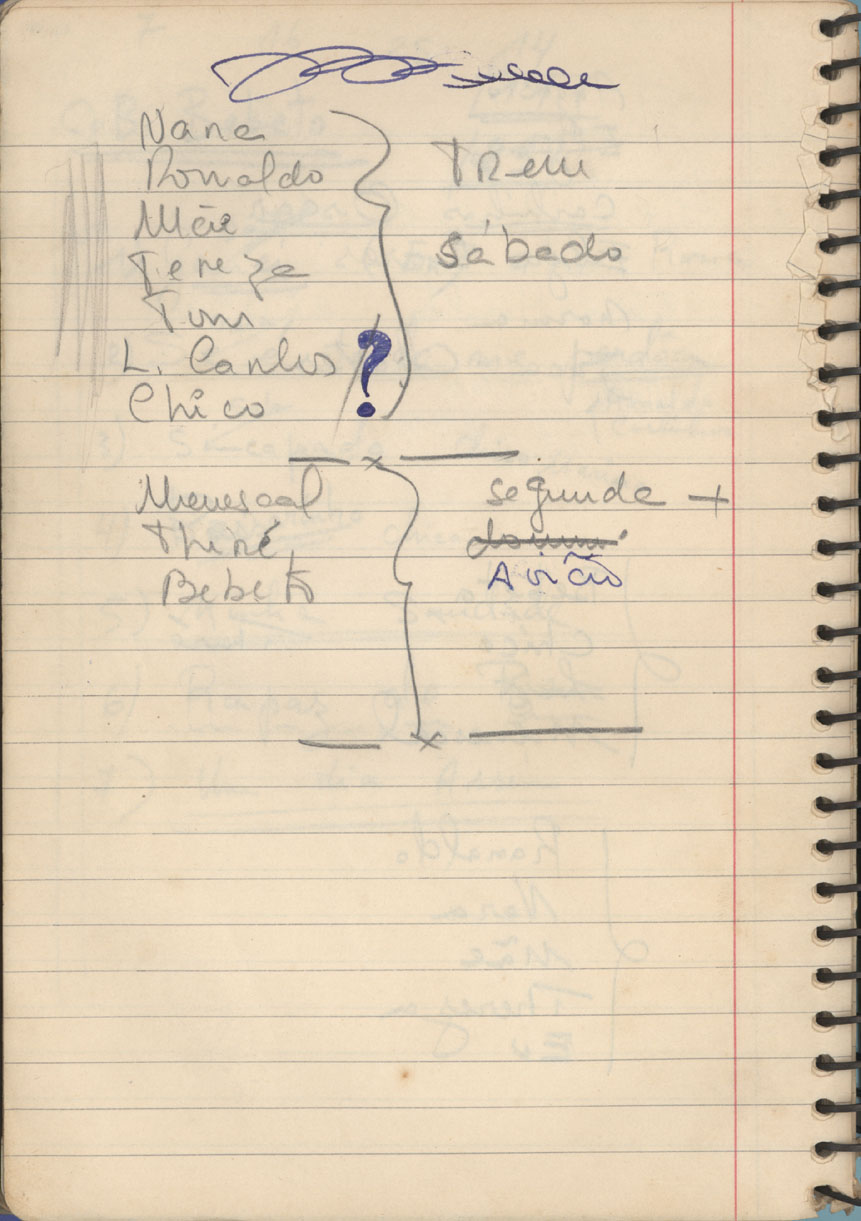 Nara
Ronaldo
Trem
Mãe
Tereza
sábado
Tom
L. Carlos ?
Chico
Menescal
segunda +
Thiré
Avião
Bebeto